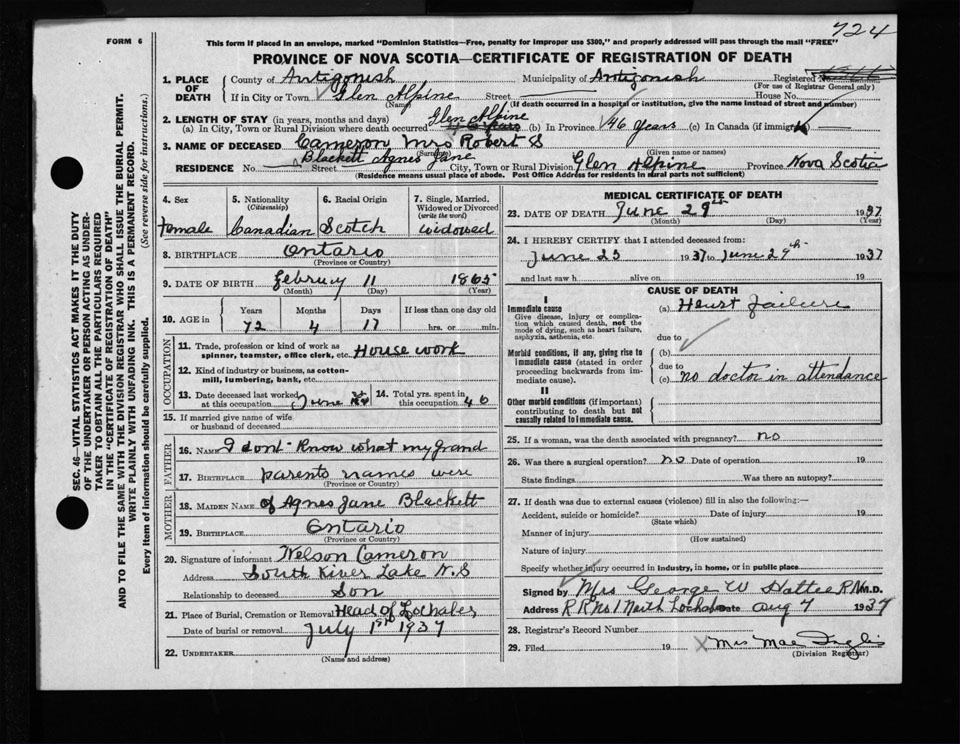 724
FORM 6
This form if placed in an envelope, marked "Dominion Statistics—Free, penalty for improper use $300," and properly addressed will pass through the mail "FREE"
PROVINCE OF NOVA SCOTIA—CERTIFICATE OF REGISTRATION OF DEATH
SEC. 46—VITAL STATISTICS ACT MAKES IT THE DUTY
OF THE UNDERTAKER OR PERSON ACTING AS UNDER-
TAKER TO OBTAIN ALL THE PARTICULARS REQUIRED
IN THE "CERTIFICATE OF REGISTRATION OF DEATH"
AND TO FILE THE SAME WITH THE DIVISION REGISTRAR WHO SHALL ISSUE THE BURIAL PERMIT.
WRITE PLAINLY WITH UNFADING INK. THIS IS A PERMANENT RECORD.
Every item of information should be carefully supplied. (See reverse side for instructions.)
1. PLACE OF DEATH County of Antigonish Municipality of Antigonish Registered No.
(For use of Registrar General only)
If in City or Town Glen Alpine Street House No.
(Name) (If death occurred in a hospital or institution, give the name instead of street and number)
2. LENGTH OF STAY (in years, months and days) Glen Alpine
(a) In City, Town or Rural Division where death occurred (b) In Province 46 Years (c) In Canada (if immigrant)
3. NAME OF DECEASED Cameron Mrs Robert S
(Surname) (Given name or names)
Blackett Agnes Jane
RESIDENCE No. Street City, Town or Rural Division Glen Alpine Province Nova Scotia
(Residence means usual place of abode. Post Office Address for residents in rural parts not sufficient)
4. Sex 5. Nationality (Citizenship) 6. Racial Origin 7. Single, Married, Widowed or Divorced (write the word)
Female Canadian Scotch widowed
8. BIRTHPLACE Ontario
(Province or Country)
9. DATE OF BIRTH Februry 11 1865
(Month) (Day) (Year)
10. AGE in Years Months Days If less than one day old
72 4 17 hrs. or min.
OCCUPATION
11. Trade, profession or kind of work as spinner, teamster, office clerk, etc. House work
12. Kind of industry or business, as cotton-mill, lumbering, bank, etc.
13. Date deceased last worked at this occupation June 14. Total yrs. spent in this occupation 46
15. If married give name of wife or husband of deceased
FATHER
16. Name I dont Know what my grand
17. Birthplace parents names were
(Province or Country)
MOTHER
18. Maiden Name of Agnes Jane Blackett
19. Birthplace Ontario
(Province or Country)
20. Signature of informant Nelson Cameron
Address South River Lake N.S
Relationship to deceased Son
21. Place of Burial, Cremation or Removal Head of Lochaber
Date of burial or removal July 1st 1937
22. UNDERTAKER
(Name and address)
MEDICAL CERTIFICATE OF DEATH
23. DATE OF DEATH June 29th 1937
(Month) (Day)
24. I HEREBY CERTIFY that I attended deceased from:
June 23 1937 to June 29th 1937
and last saw h alive on 19
CAUSE OF DEATH
I
Immediate cause (a) Heart failure
Give disease, injury or complication which caused death, not the mode of dying, such as heart failure, asphyxia, asthenia, etc. due to
Morbid conditions, if any, giving rise to immediate cause (stated in order proceeding backwards from immediate cause). (b) due to
(c) no doctor in attendance
II
Other morbid conditions (if important) contributing to death but not causally related to immediate cause.
25. If a woman, was the death associated with pregnancy? no
26. Was there a surgical operation? no Date of operation 19
State findings Was there an autopsy?
27. If death was due to external causes (violence) fill in also the following:—
Accident, suicide or homicide? Date of injury 19
(State which)
Manner of injury
(How sustained)
Nature of injury
Specify whether injury occurred in industry, in home, or in public place
Signed by Mrs George W Hattie R.N M.D.
Address R.R No 1 North Lochaber Date Aug 7 1937
28. Registrar's Record Number
29. Filed 19 Mrs Mae Inglis
(Division Registrar)